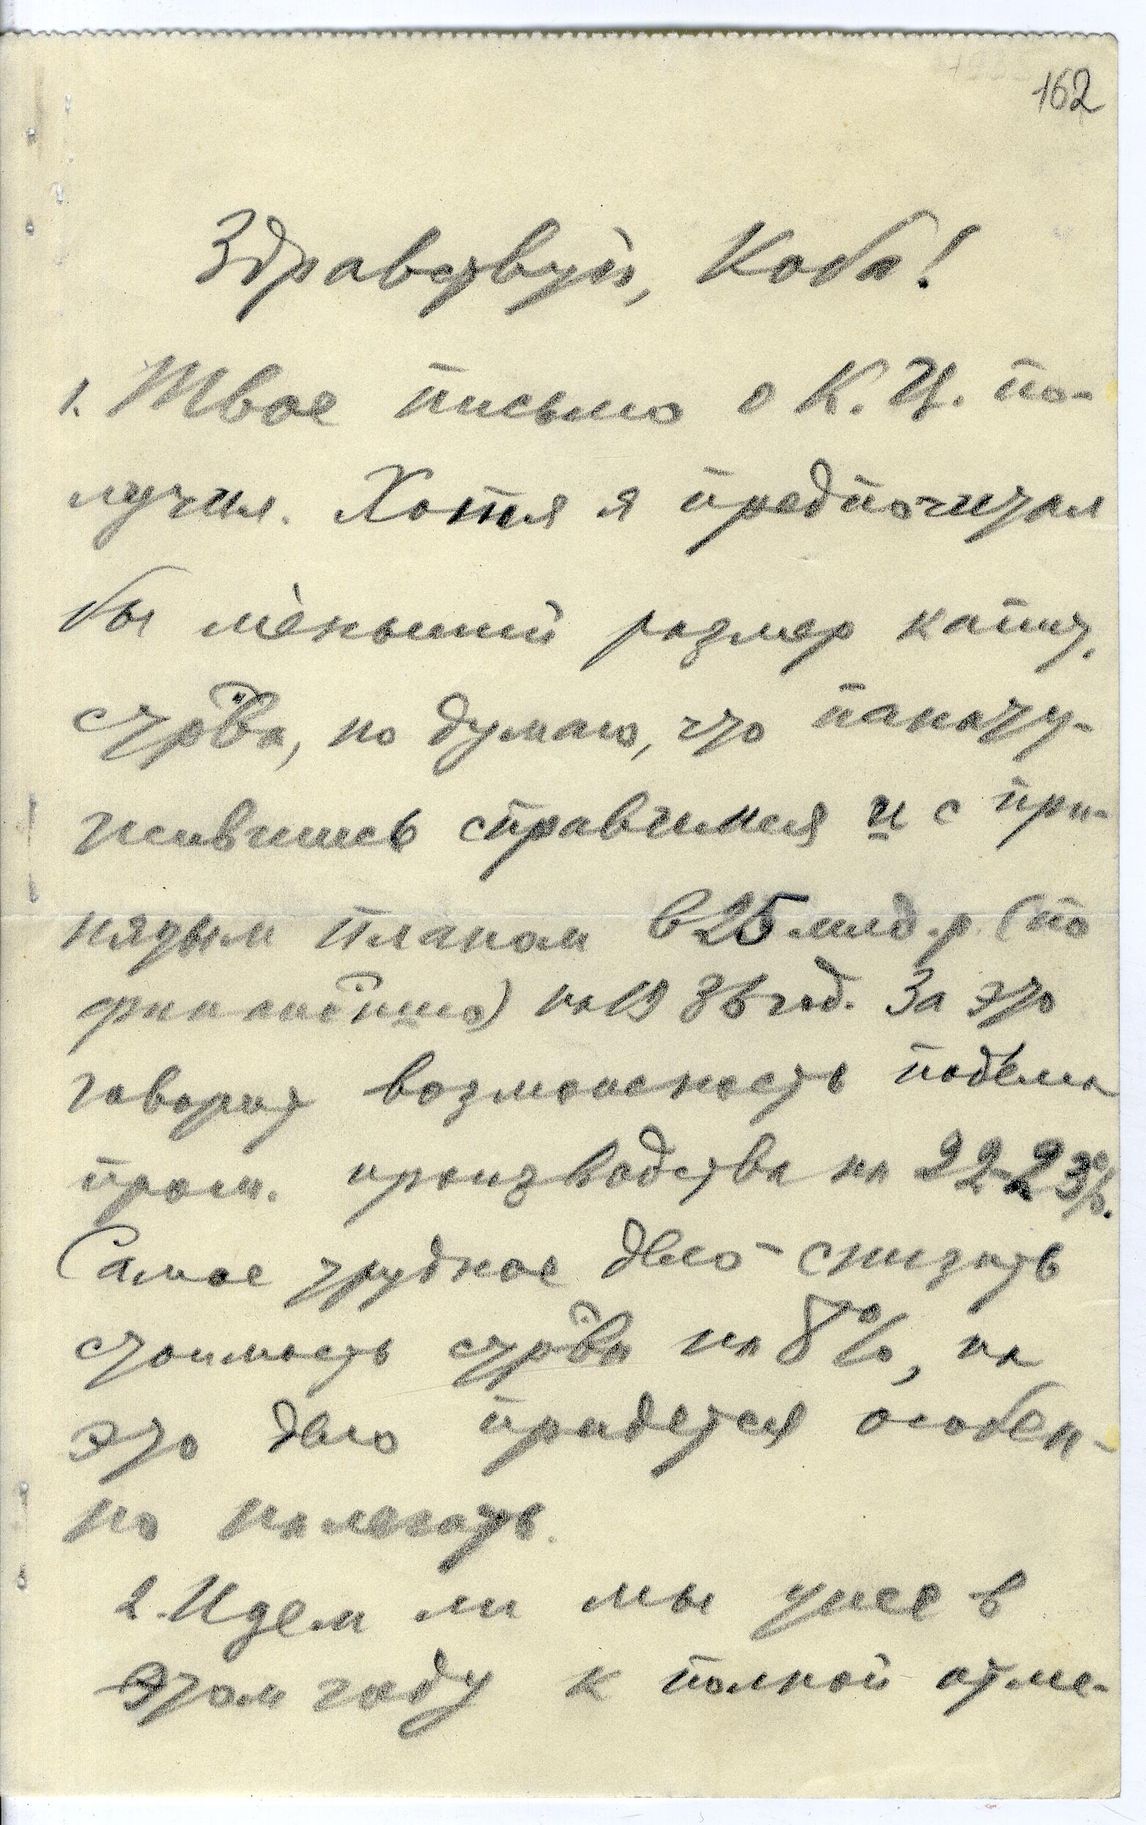 162
Здравствуй, Коба!
1. Твое письмо о К.Ц. по-
лучил. Хотя я предпочитал
бы меньший размер капит.
стр-ва, но думаю, что понату-
жившись справимся и с при-
нятым планом в 25 млд. р. (по
финанс
на 1936 год. За это
говорит возможность подъема
пром. производства на 22-23%.
Самое трудное дело - снизить
стоимость стр-ва на 8%, на
это дело придется особен-
но налегать.
2. Идем ли мы уже в
этом году к полной отме-